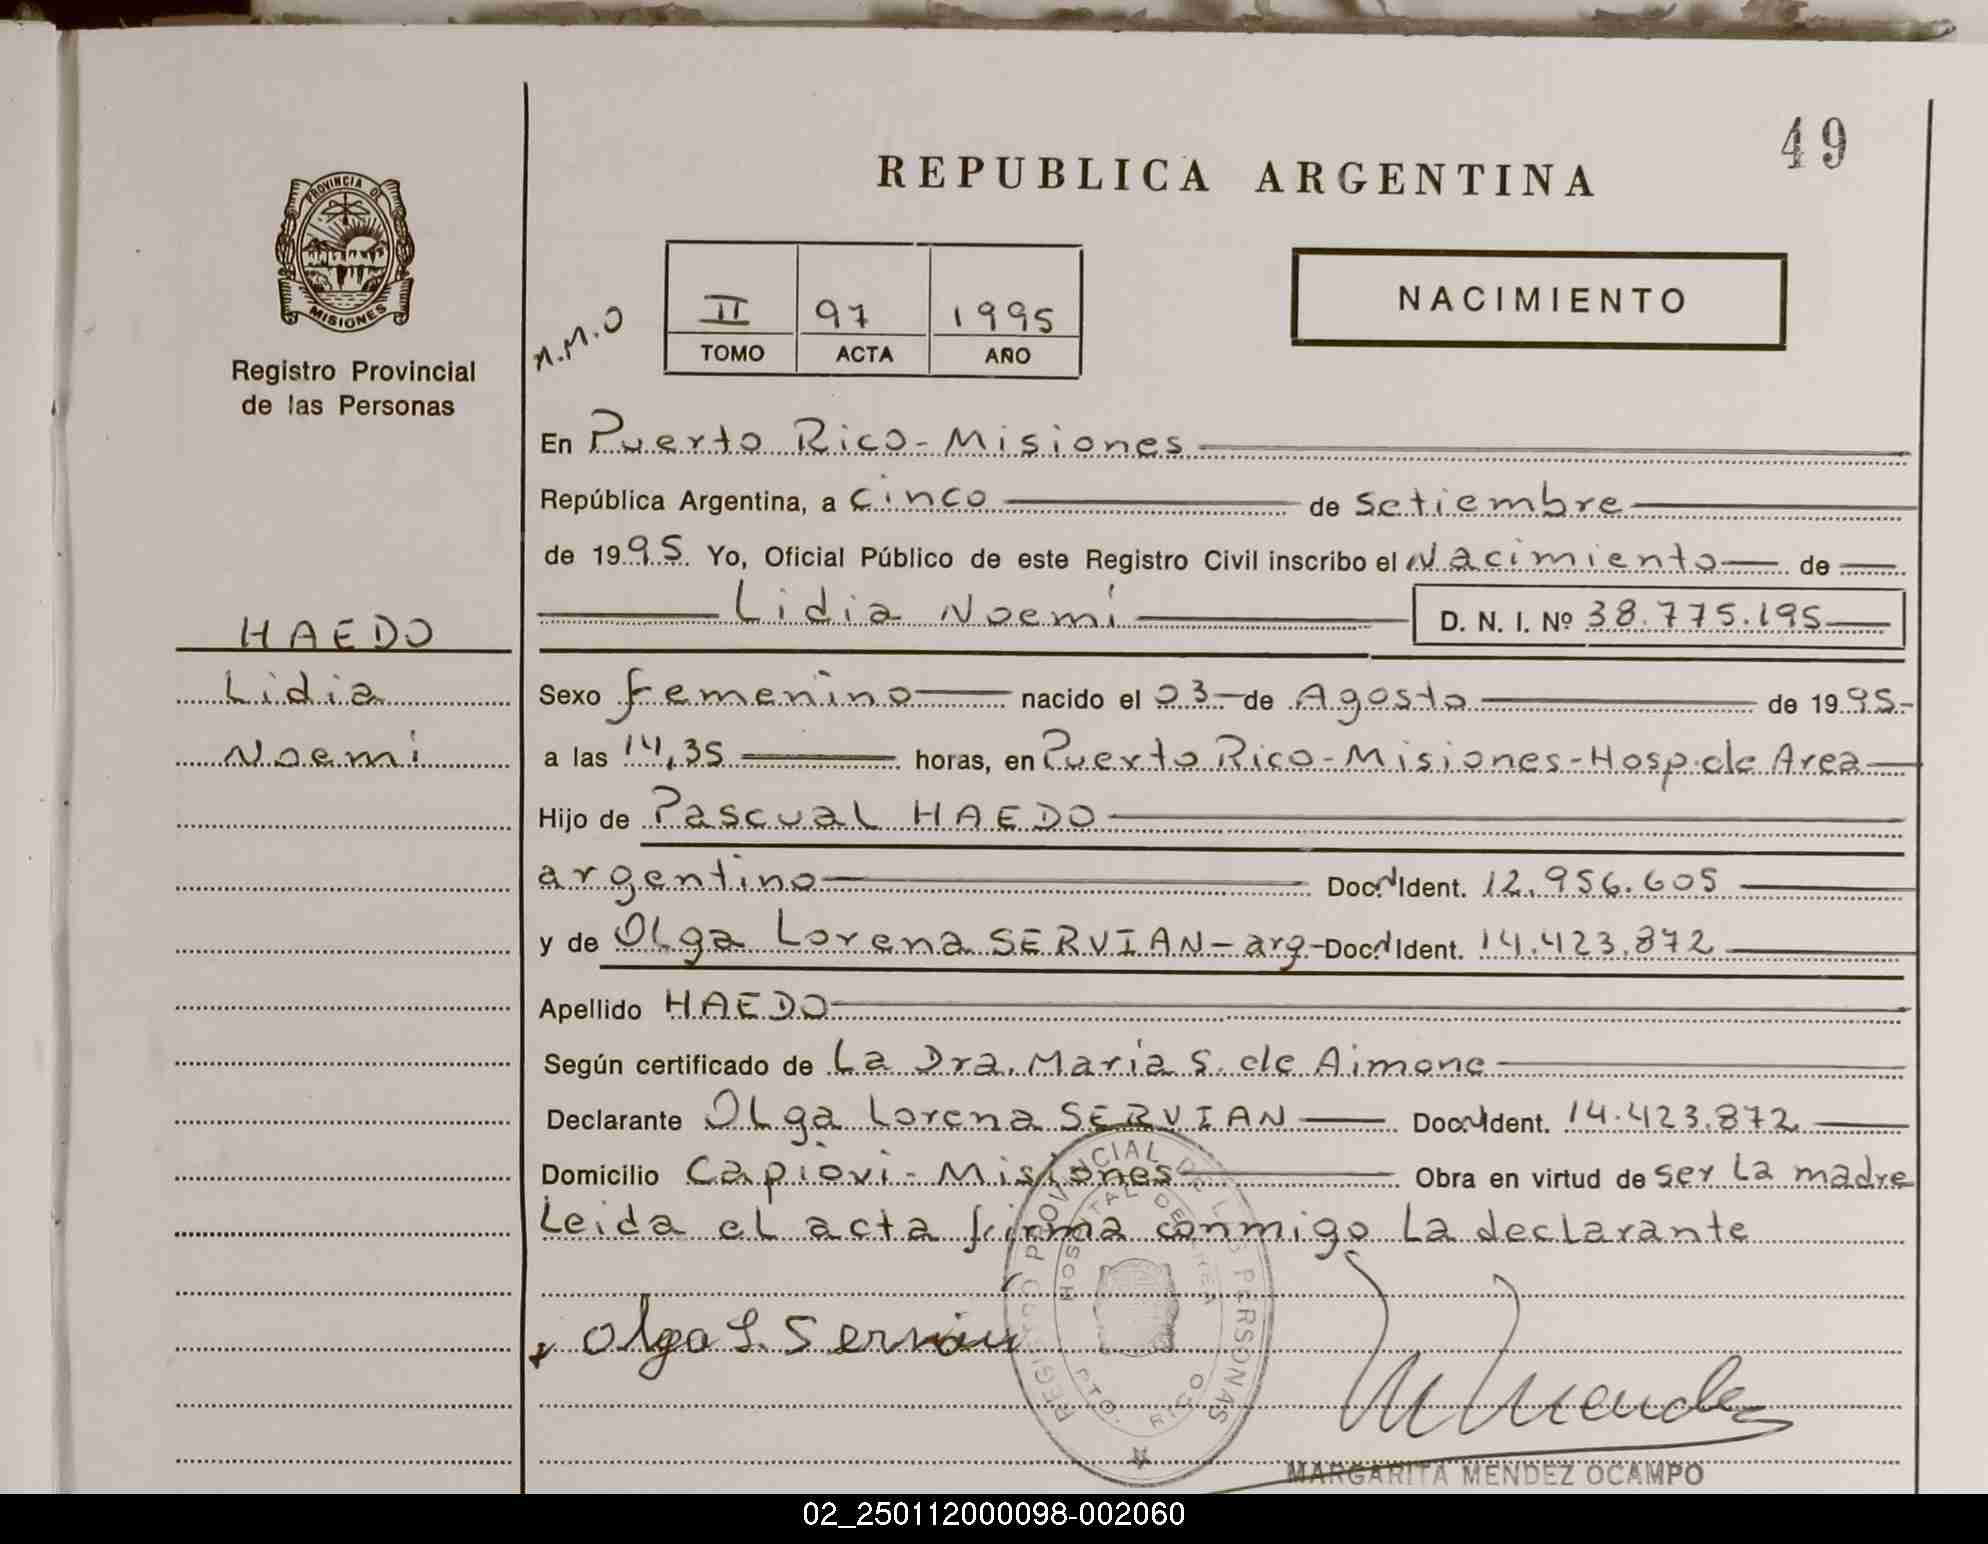 49
REPUBLICA ARGENTINA
PROVINCIA DE
MISIONES
Registro Provincial
de las Personas
M.M.O
II 97 1995
TOMO ACTA AÑO
NACIMIENTO
En Puerto Rico - Misiones
República Argentina, a cinco de Setiembre
de 1995 Yo, Oficial Público de este Registro Civil inscribo el Nacimiento de
Lidia Noemí D. N. I. Nº 38.775.195
HAEDO
Lidia
Noemí
Sexo femenino nacido el 03 de Agosto de 1995
a las 14,35 horas, en Puerto Rico - Misiones - Hosp. de Area
Hijo de Pascual HAEDO
argentino Doc. N Ident. 12.956.605
y de Olga Lorena SERVIAN - arg - Doc. N Ident. 14.423.872
Apellido HAEDO
Según certificado de La Dra. María S. de Aimone
Declarante Olga Lorena SERVIAN Doc. N Ident. 14.423.872
Domicilio Capioví - Misiones Obra en virtud de ser La madre
Leida el acta firma conmigo La declarante
REGISTRO PROVINCIAL DE LAS PERSONAS
HOSPITAL DE AREA
PTO. RICO
Olga L. Servian
M Mendez
MARGARITA MENDEZ OCAMPO
02_250112000098-002060